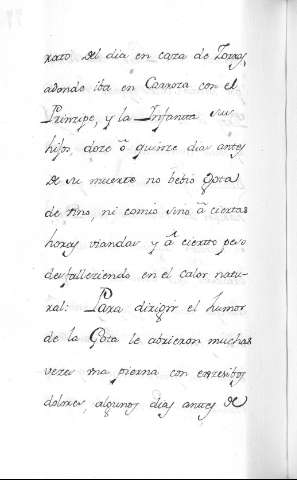 rato del dia en caza de Torres,
adonde iba en Carroza con el
Principe, y la Infanta sus
hijos, doze ô quinze dias antes
de su muerte no bebió gota
de vino, ni comio sino â ciertas
horas viandas y â cierto peso
desfalleziendo en el calor natu-
ral: Para dirigir el humor
de la Gota le abrieron muchas
vezes una pierna con excesibos
dolores, algunos dias antes de